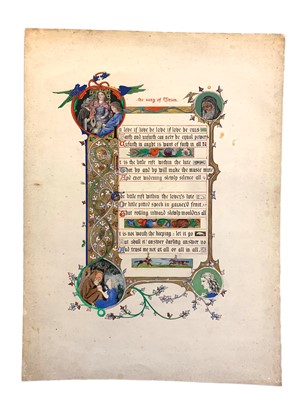 the song of Vivien
n love if love be love if love be ours
Faith and unfaith can ne'er be equal powers
Unfaith in aught is want of faith in all
It is the little rift within the lute
That by and by will make the music mute
And ever widening slowly silence all
The little rift within the lover's lute
Or little pitted speck in garner'd fruit
That rotting inward slowly moulders all
It is not worth the keeping: let it go
But shall it? answer darling answer no
And trust me not at all or all in all